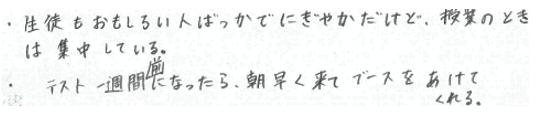 ・生徒もおもしろい人ばっかでにぎやかだけど、授業のとき
は集中している。
・テスト一週間前になったら、朝早く来てブースをあけて
くれる。